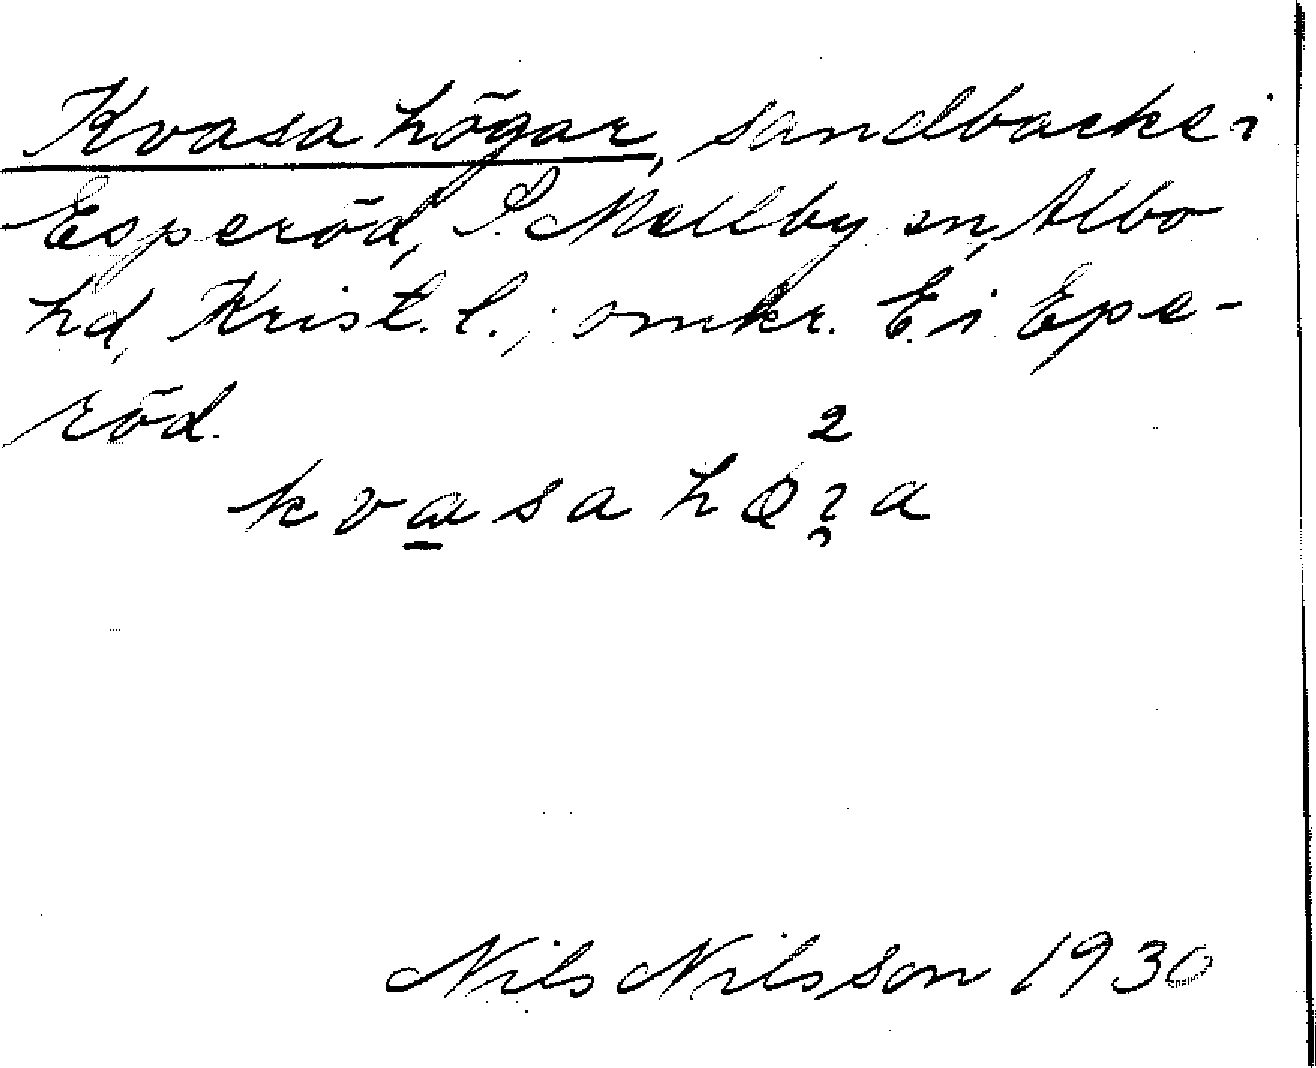 Kvasa högar, sandbacke i
Esperöd, S. Mellby sn, Albo
hd, Krist. l.; omkr. E. i Epe-
röd.
2
kvasa hø
Nils Nilsson 1930